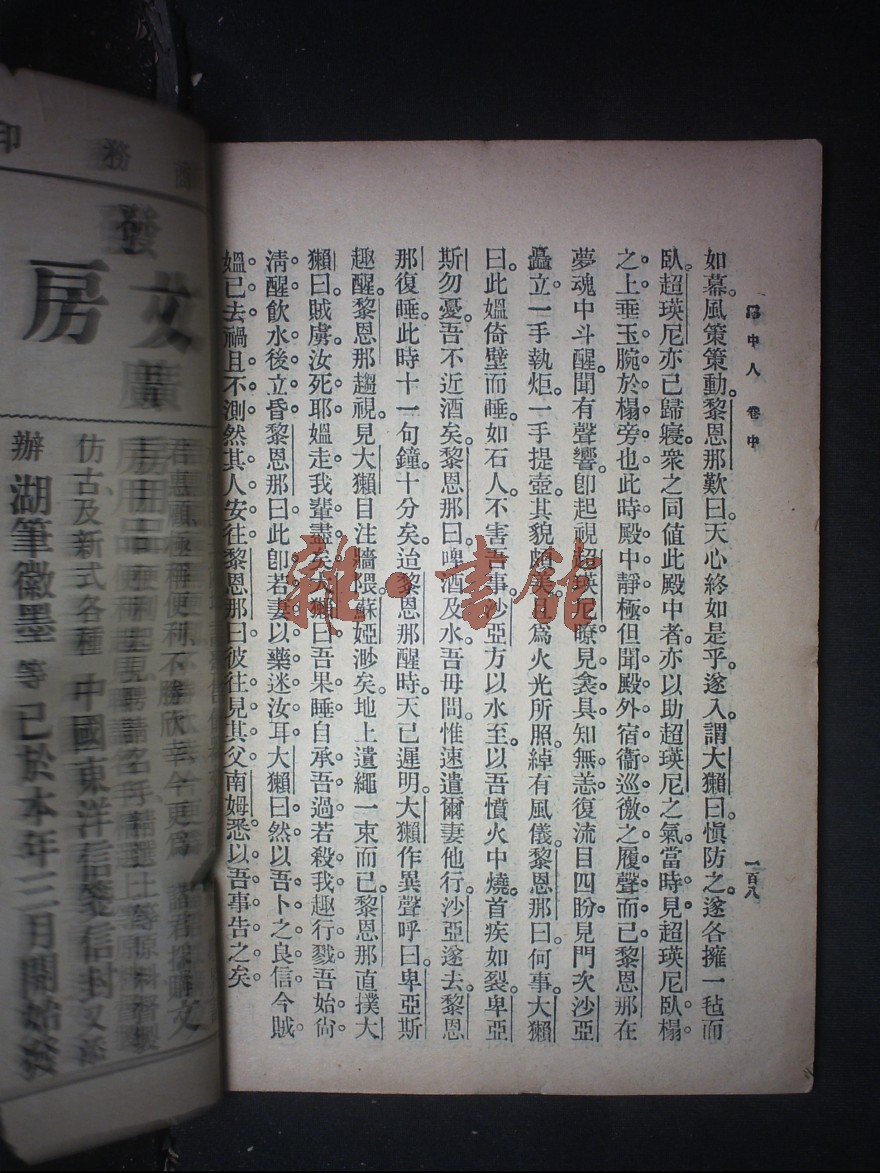 中人 卷中
一百八
如慕。風策策動。黎恩那歎曰。天心終如是乎。遂入謂大獺曰。愼防之。遂各擁一毡而
臥。超瑛尼亦已歸寢。衆之同值此殿中者。亦以助超瑛尼之氣。當時見超瑛尼臥榻
之上。垂玉腕於榻旁也。此時殿中靜極。但聞殿外宿衞巡徼之履聲而已。黎恩那在
夢魂中斗醒。聞有聲響。卽起視超瑛尼。瞭見衾具。知無恙。復流目四盼。見門次沙亞
矗立。一手執炬。一手提壺。其貌 美。且爲火光所照。綽有風儀。黎恩那曰。何事。大獺
曰。此媼倚壁而睡。如石人。不害吾事。沙亞方以水至。以吾憤火中燒。首疾如裂。卑亞
斯勿憂。吾不近酒矣。黎恩那曰。啤酒及水。吾毋問。惟速遣爾妻他行。沙亞遂去。黎恩
那復睡。此時十一句鐘十分矣。迨黎恩那醒時。天已遲明。大獺作異聲呼曰。卑亞斯
趣醒。黎恩那趨視。見大獺目注牆隈。蘇婭渺矣。地上遺繩一束而已。黎恩那直撲大
獺曰。賊虜。汝死耶。媼走。我輩盡矣。大獺曰。吾果睡。自承吾過。若殺我。趣行戮。吾始尙
淸醒。飲水後立昏。黎恩那曰。此卽若妻以藥迷汝耳。大獺曰。然。以吾卜之良信。今賊
媼已去。禍且不測。然其人安往。黎恩那曰。彼往見其父南姆。悉以吾事告之矣。
雜·書館
務印
發
文房
廣
君惠顧極稱便利不勝欣幸今更爲
仿古及新式各種中國東洋信箋信封又添
辦湖筆徽墨等已於本年三月開始發